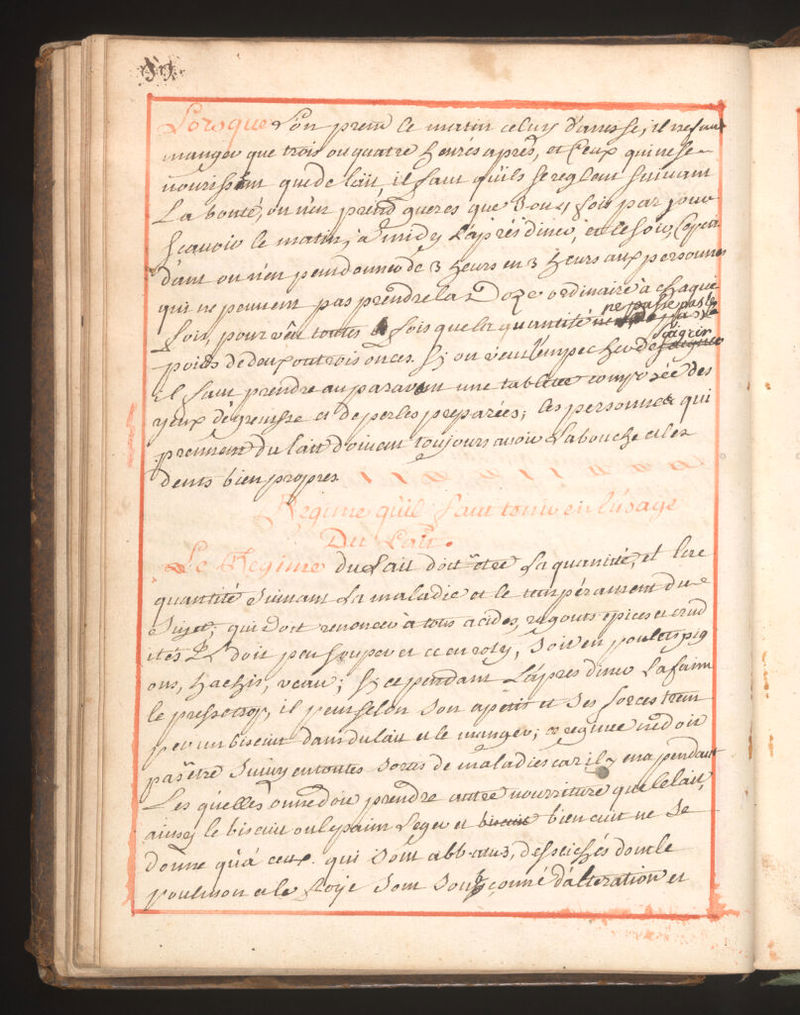 Lorsque l'on prend le matin celuy d'anesse, il ne faut
manger que trois ou quatre heures apres, et Ceux qui ne se
nourissent que de lait, il faut qu'ils se reglent suivant
La bonté, on n'en prend gueres que 3 ou 4 fois par jour
scavoir le matin, a midy L'apres dinev, et le soir, Cepen
dant on n'en peut donner de 3 heurs en 3 heurs aux personnes
qui ne peuvent pas prendre la Doze ordinaire à chaque
fois, pourvëu toutes fois que la quantité ne passe pas le
poids de deux ou trois onces. Sy on veut l'empecher de s'aigrir
il faut prendre au paravant une tablette composée des
yeux d'egrevisse et de perles preparées; les personnes qui
prennent du lait doivent toujours avoir La bouche et les
dents bien propres
Regime qu'il faut tenir en l'usage
Du Lait.
Le Regime du Lait doit etre sa quantité, et
quantité suivant La maladie et le temperament du
Sujet, qui doit renoncer à tous acides, ragouts epices et crud
ités Il doit peu souper et ce en roty, Soit en poulets pig
ons, hachis, veau; Sy cependant L'apres dinev La faim
le presse trop, il peut selon Son apetit et Ses forces trem
per un biscuit dans du lait et le manger; ce regime ne doit
pas être Suivy en toutes Sortes de maladies car il y en a pendant
Les quelles on ne doit prendre autre nourriture que le lait,
ainsy le biscuit ou le pain Leger et bien cuit ne Se
donne qu'à ceux qui Sont abbatus, dessechés dont le
poulmon et le foye Sont Soubçonné d'alteration et